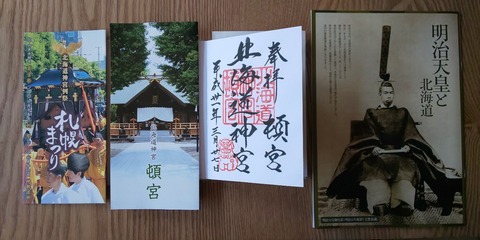 北海道神宮例祭
札幌まつり
北海道神宮
頓宮
奉拝 頓宮
北海道神宮
平成卅一年三月廿七日
明治天皇と
北海道